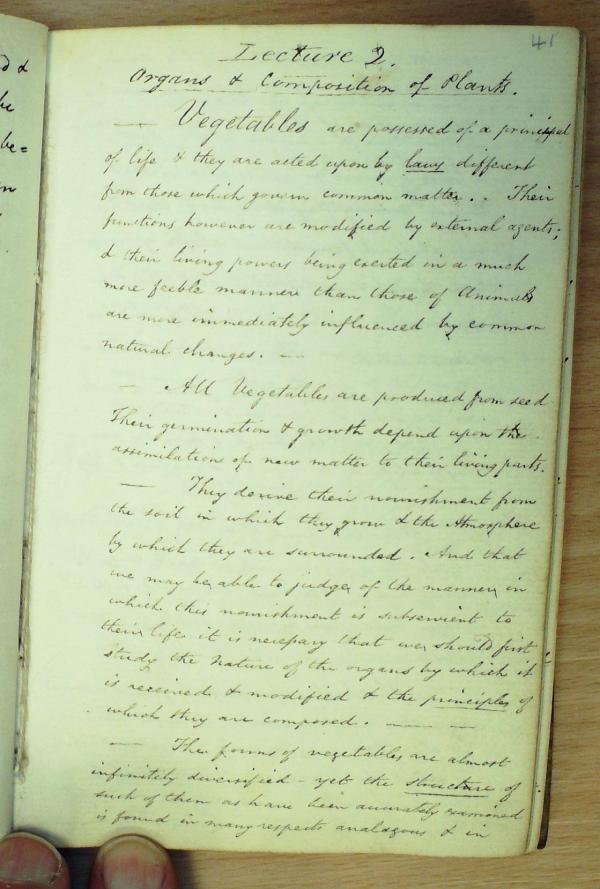 41
Lecture 2.
Organs & Composition of Plants.
— Vegetables are possessed of a principal
of life & they are acted upon by laws different
from those which govern common matter. . Their
functions however are modified by external agents;
& their living powers being exerted in a much
more feeble manner than those of Animals
are more immediately influenced by common
natural changes. —
— All Vegetables are produced from seed
Their germination & growth depend upon the
assimilation of new matter to their living parts.
— They derive their nourishment from
the soil in which they grow & the Atmosphere
by which they are surrounded. And that
we may be able to judge of the manner in
which this nourishment is subservient to
their life it is necessary that we should first
study the nature of the organs by which it
is received & modified & the principles of
which they are composed. — — —
— The forms of vegetables are almost
infinitely diversified - yet the structure of
such of them as have been accurately examined
is found in many respects analogous & in
d &
he
be=